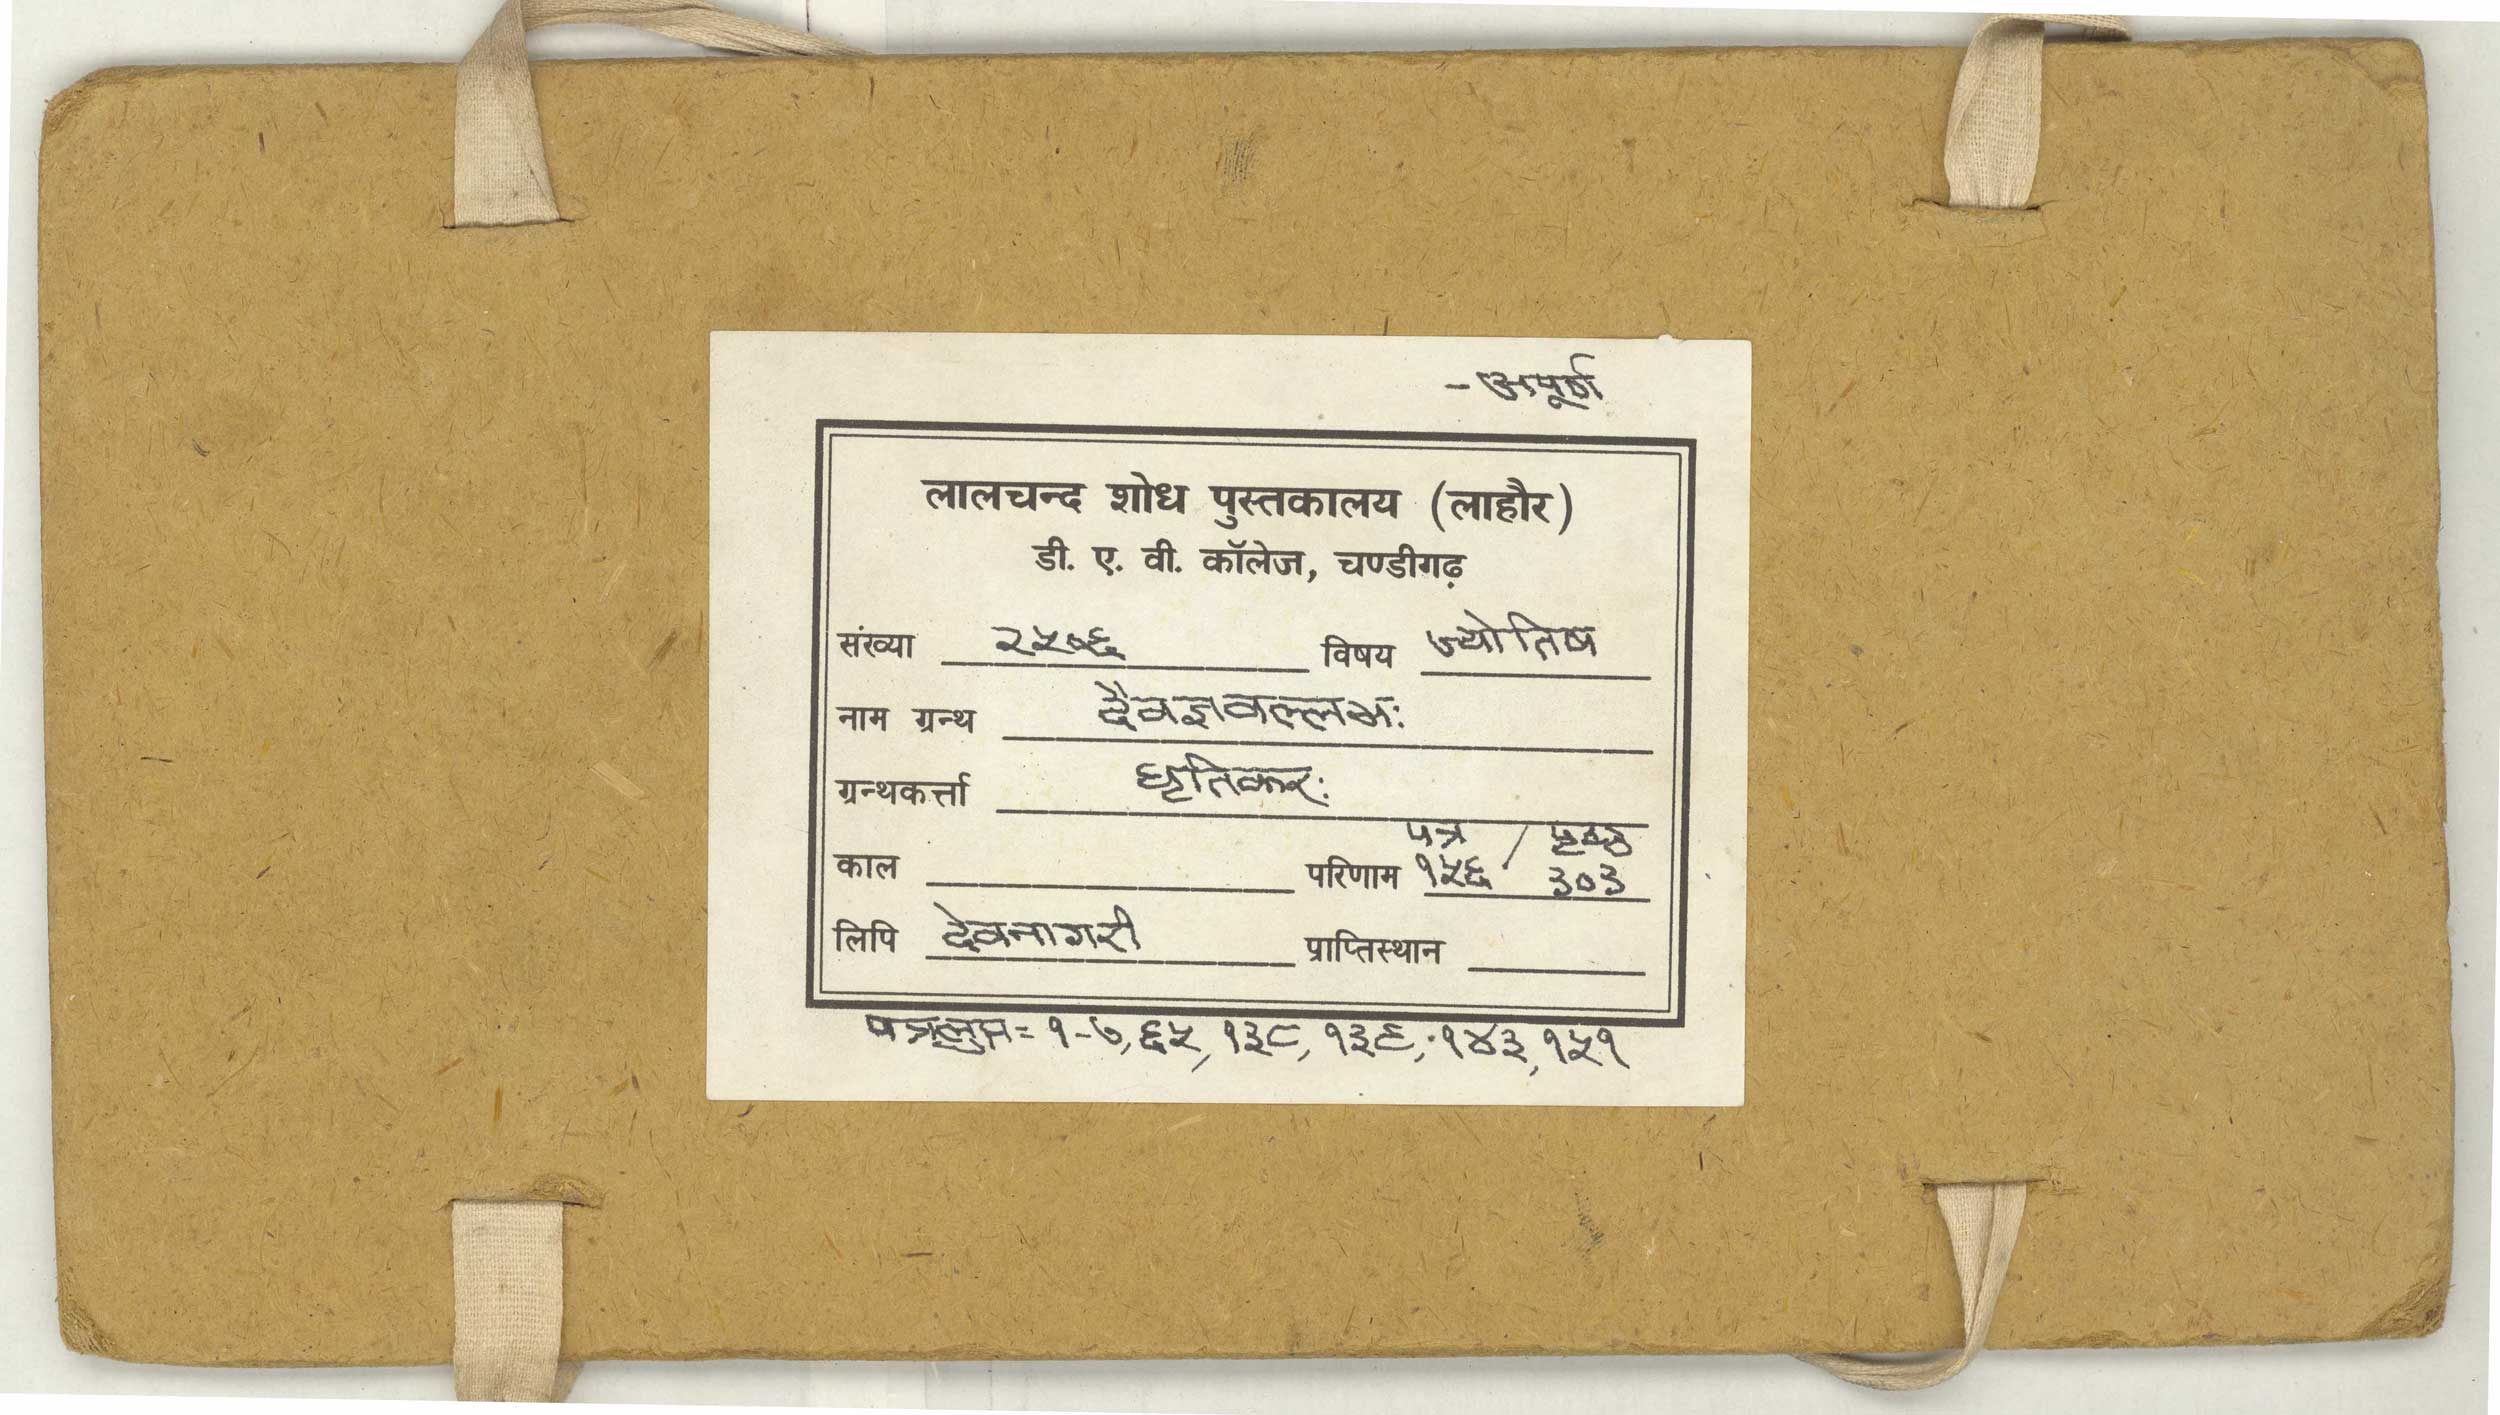 - अपूर्ण
लालचन्द शोध पुस्तकालय (लाहौर)
डी. ए. वी. कॉलेज, चण्डीगढ़
संख्या २५०६ विषय ज्योतिष
नाम ग्रन्थ दैवज्ञवल्लभः
ग्रन्थकर्त्ता धृतिकरः
पत्र / पृष्ठ
काल परिणाम १५६ ३०३
लिपि देवनागरी प्राप्तिस्थान
पत्रलुप्त = १-७, ६५, १३८, १३९, १४३, १५१